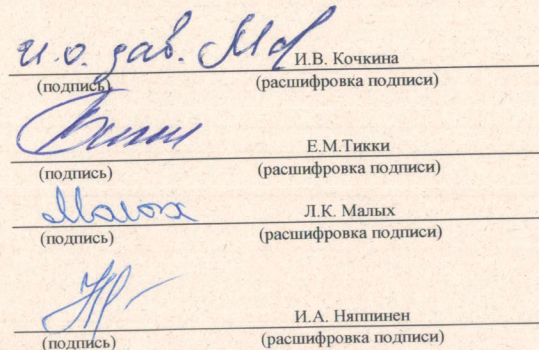 и.о. зав. И.В. Кочкина
(подпись) (расшифровка подписи)
Е.М.Тикки
(подпись) (расшифровка подписи)
Малых Л.К. Малых
(подпись) (расшифровка подписи)
И.А. Няппинен
(подпись) (расшифровка подписи)